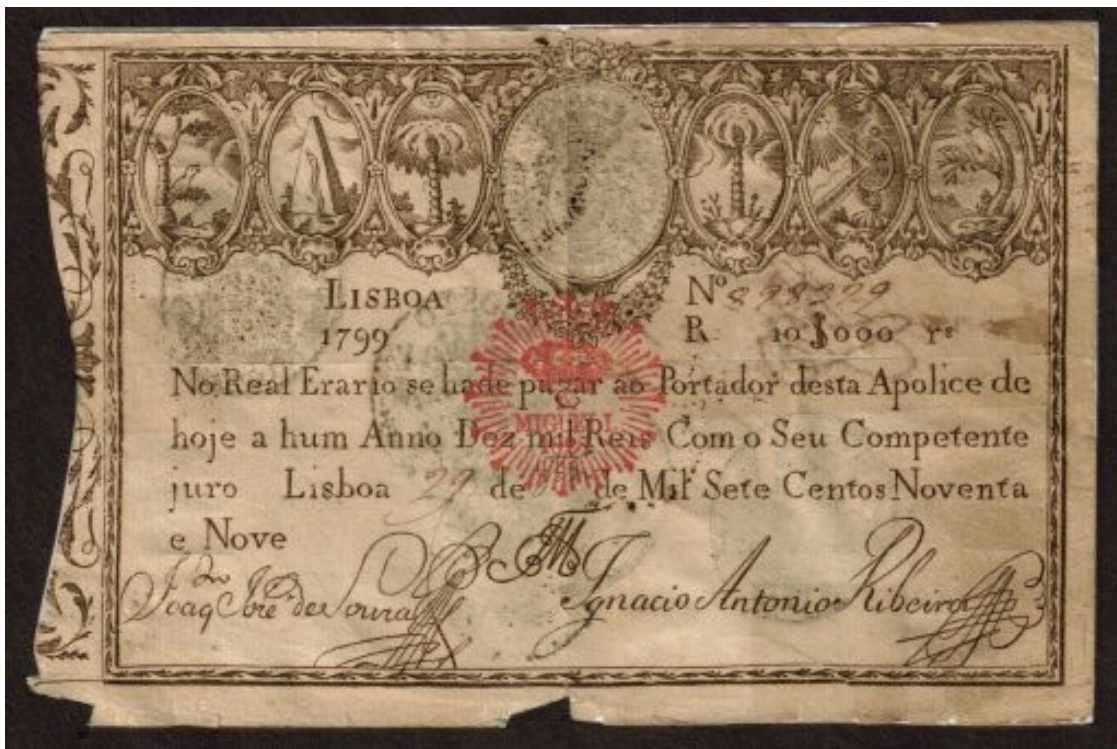 LISBOA
1799
Nº
R 10$000 rs
No Real Erario se hade pagar ao Portador desta Apolice de
hoje a hum Anno Dez mil Reis Com o Seu Competente
juro Lisboa 29 de de Mil Sete Centos Noventa
e Nove
MIGUEL I.
Ignacio Antonio Ribeiro